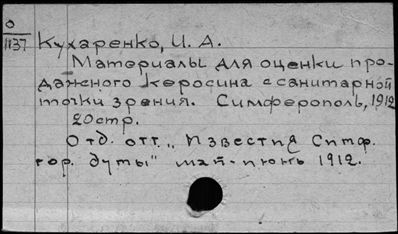 О
1137
Кухаренко, И. А.
Материалы для оценки про-
дажного керосина с санитарной
точки зрения. Симферополь, 1912
20стр.
Отд. отт. „Известия Симф.
гор. думы" май-июнь 1912.